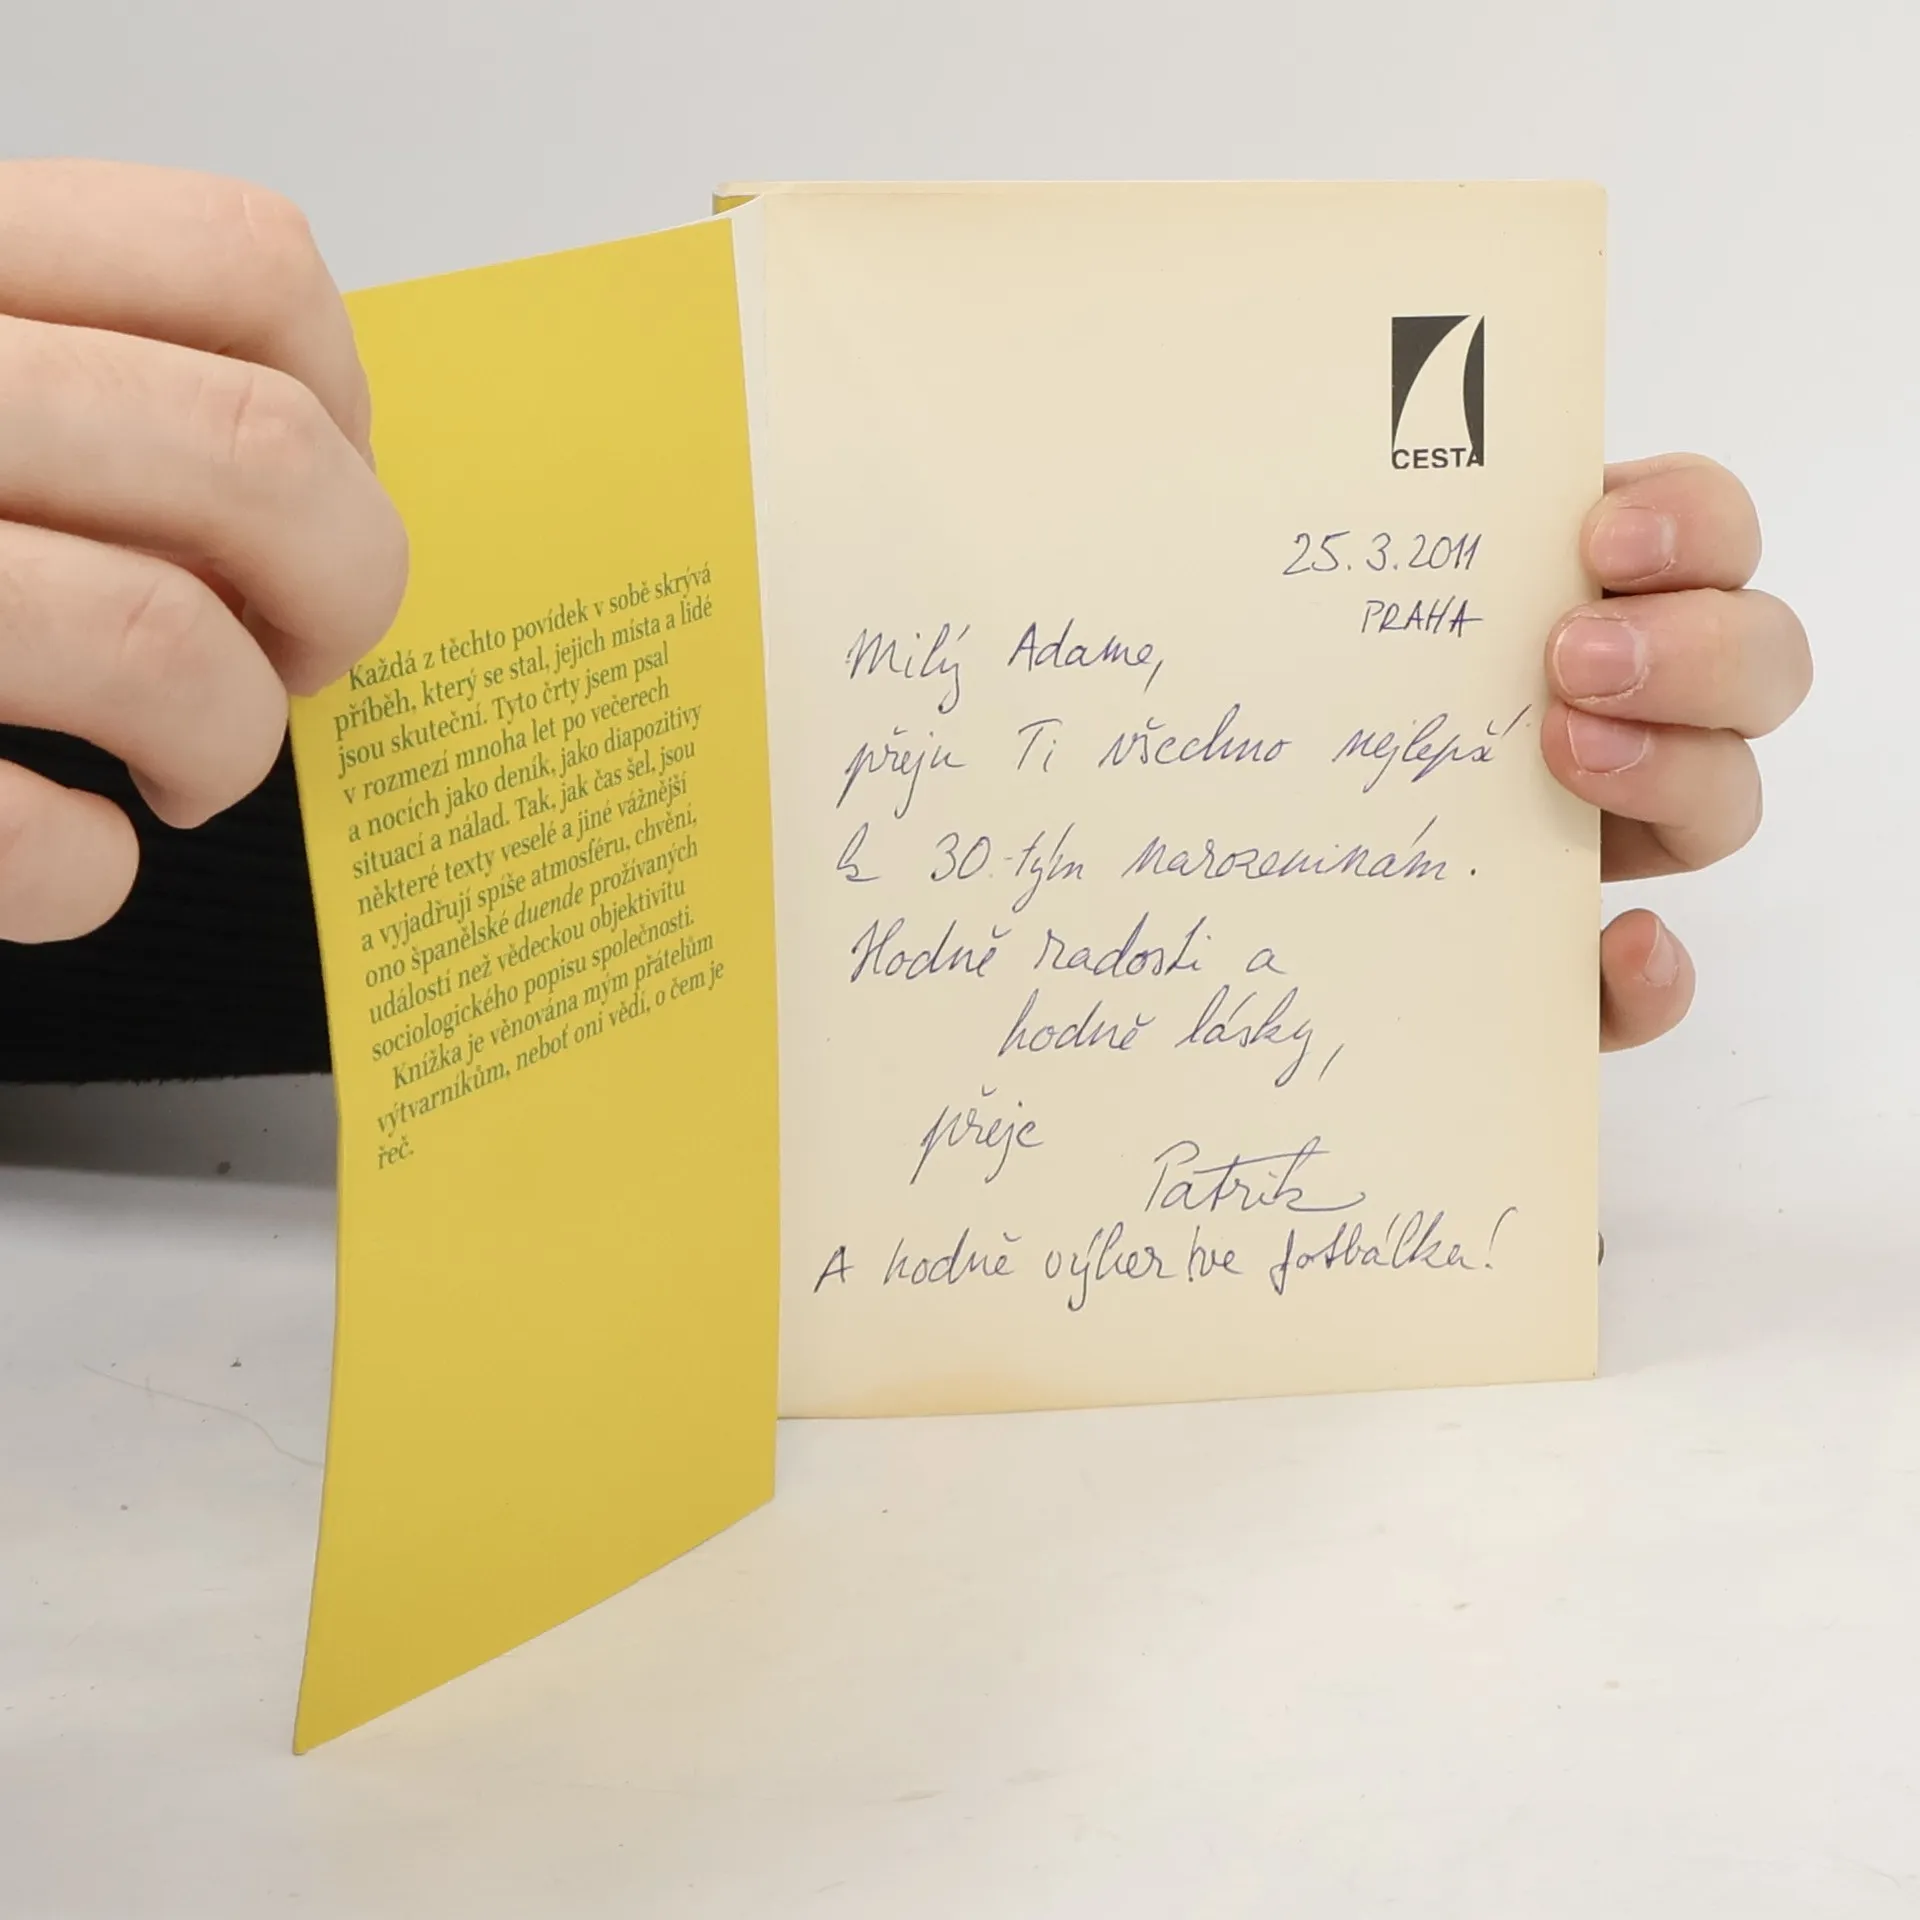 Každá z těchto povídek v sobě skrývá
příběh, který se stal, jejich místa a lidé
jsou skuteční. Tyto črty jsem psal
v rozmezí mnoha let po večerech
a nocích jako deník, jako diapozitivy
situací a nálad. Tak, jak čas šel, jsou
některé texty veselé a jiné vážnější
a vyjadřují spíše atmosféru, chvění,
ono španělské duende prožívaných
událostí než vědeckou objektivitu
sociologického popisu společnosti.
Knížka je věnována mým přátelům
výtvarníkům, neboť oni vědí, o čem je
řeč.
CESTA
25.3.2011
PRAHA
Milý Adame,
přeju Ti všechno nejlepší
k 30-tým narozeninám.
Hodně radosti a
hodně lásky,
přeje
Patrik
A hodně výher ve fotbálku!